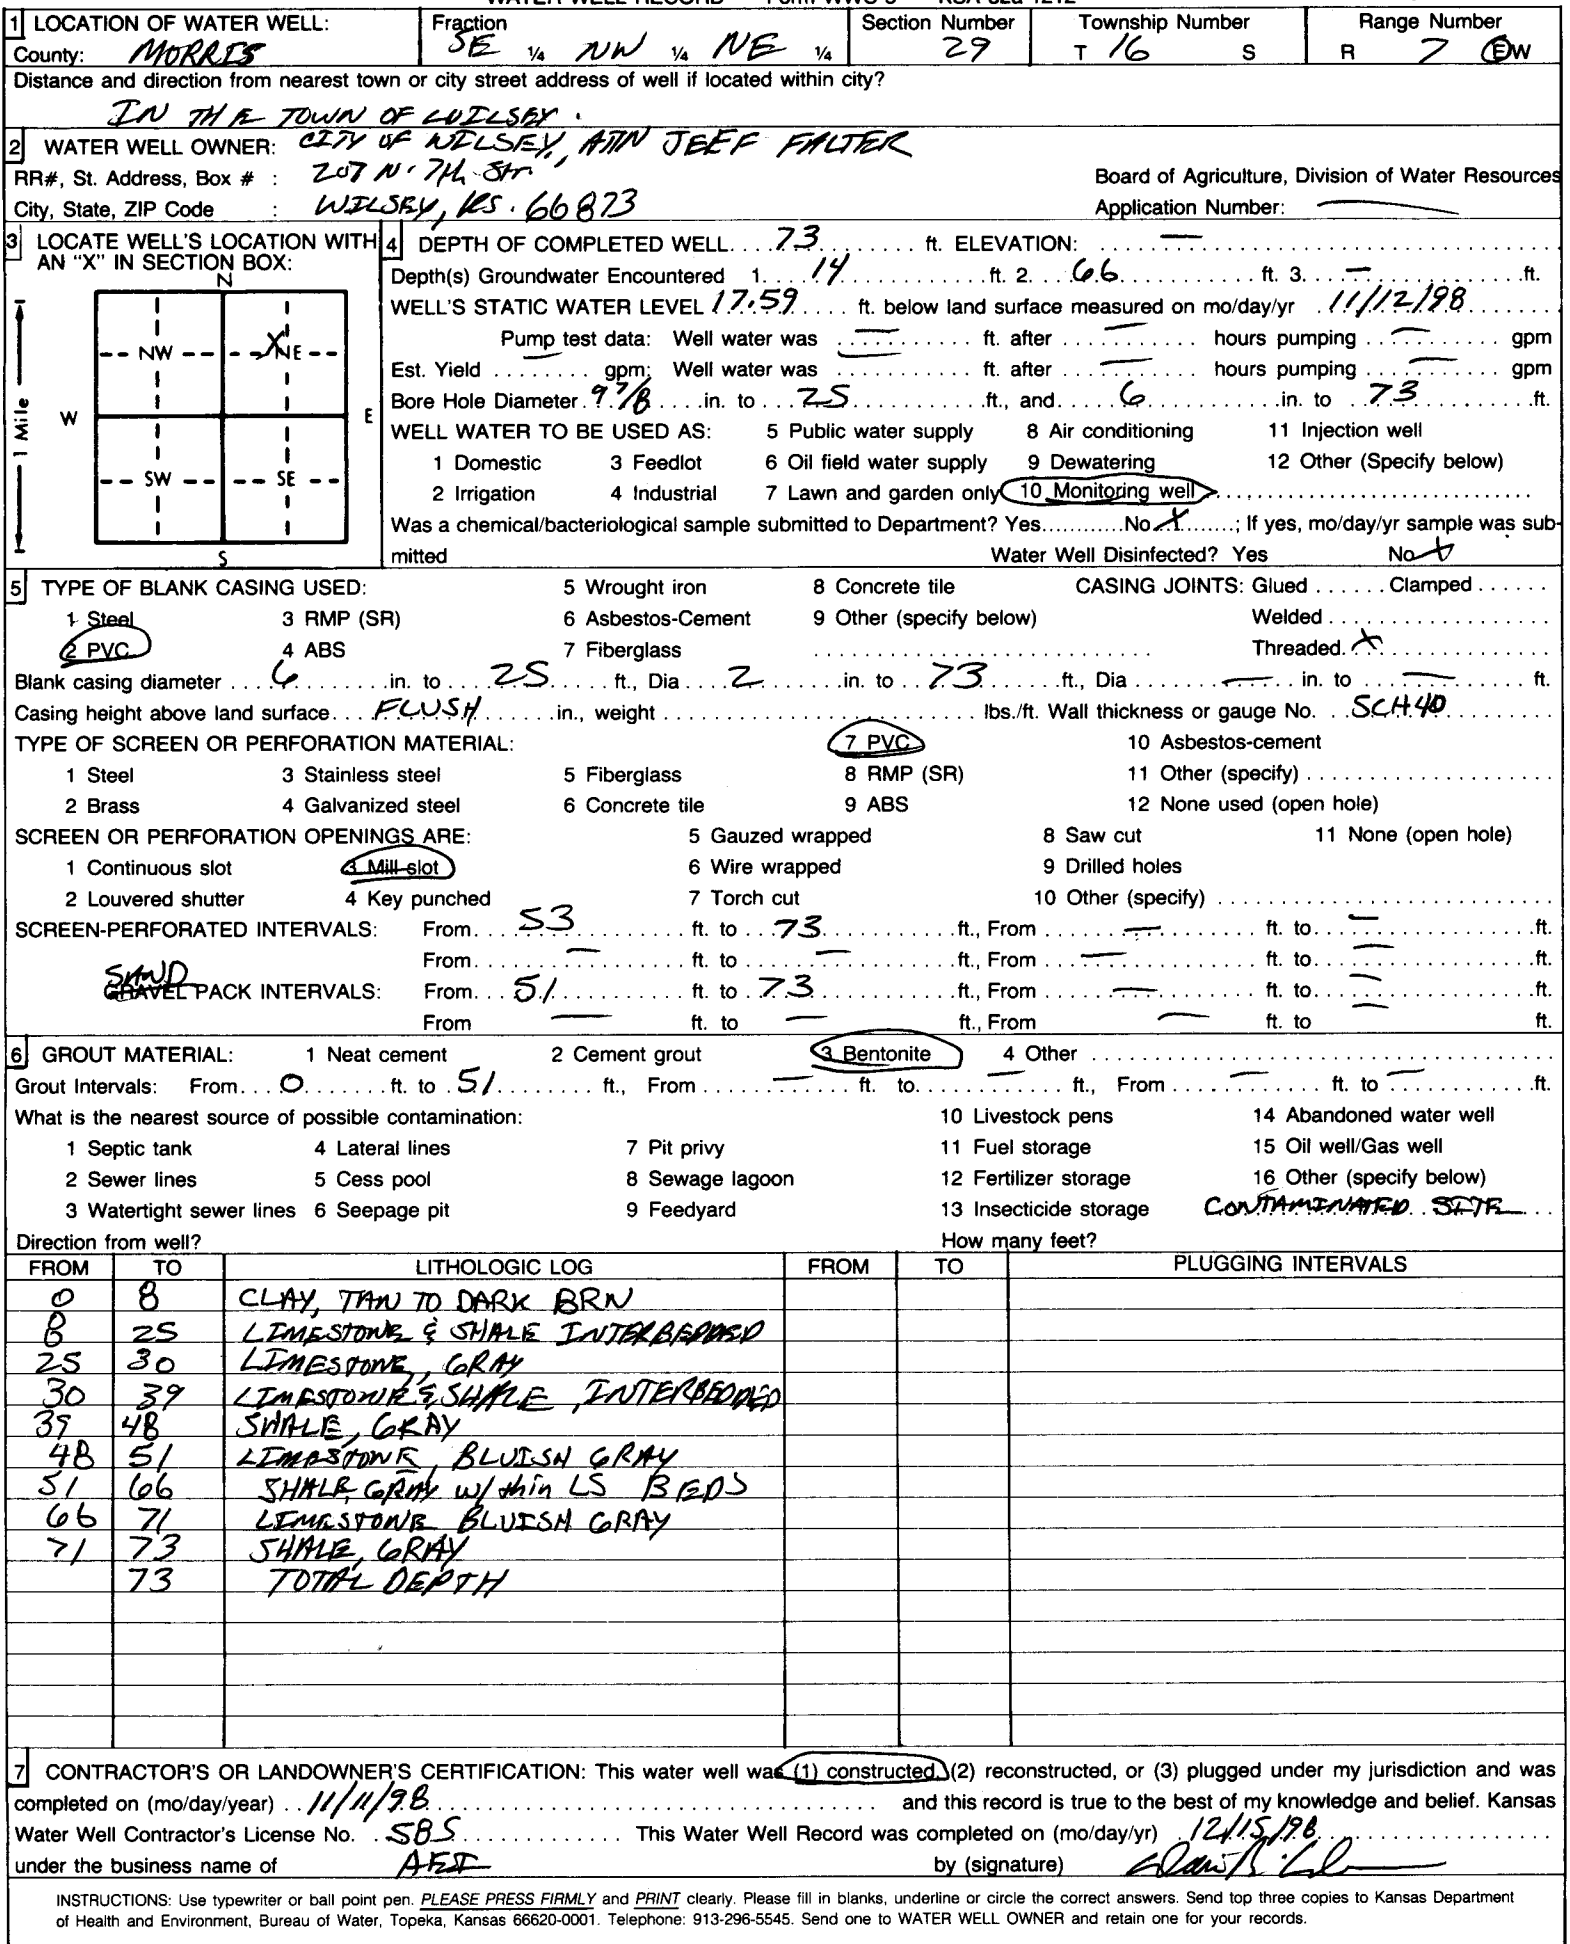 WATER WELL RECORD Form WWC-5 KSA 82a-1212
1 LOCATION OF WATER WELL: Fraction Section Number Township Number Range Number
County: MORRIS SE ¼ NW ¼ NE ¼ 29 T 16 S R 7 EW
Distance and direction from nearest town or city street address of well if located within city?
IN THE TOWN OF WILSEY.
2 WATER WELL OWNER: CITY OF WILSEY, ATTN JEFF FALTER
RR#, St. Address, Box # : 207 N. 7th Str. Board of Agriculture, Division of Water Resources
City, State, ZIP Code : WILSEY, KS. 66873 Application Number: —
3 LOCATE WELL'S LOCATION WITH AN "X" IN SECTION BOX:
N
NW X NE
W E
SW SE
S
1 Mile
4 DEPTH OF COMPLETED WELL 73 ft. ELEVATION: —
Depth(s) Groundwater Encountered 1. 14 ft. 2. 66 ft. 3. — ft.
WELL'S STATIC WATER LEVEL 17.59 ft. below land surface measured on mo/day/yr 11/12/98
Pump test data: Well water was — ft. after — hours pumping — gpm
Est. Yield — gpm; Well water was — ft. after — hours pumping — gpm
Bore Hole Diameter 9 7/8 in. to 25 ft., and 6 in. to 73 ft.
WELL WATER TO BE USED AS: 5 Public water supply 8 Air conditioning 11 Injection well
1 Domestic 3 Feedlot 6 Oil field water supply 9 Dewatering 12 Other (Specify below)
2 Irrigation 4 Industrial 7 Lawn and garden only 10 Monitoring well
Was a chemical/bacteriological sample submitted to Department? Yes No X ; If yes, mo/day/yr sample was sub-
mitted Water Well Disinfected? Yes No X
5 TYPE OF BLANK CASING USED: 5 Wrought iron 8 Concrete tile CASING JOINTS: Glued Clamped
1 Steel 3 RMP (SR) 6 Asbestos-Cement 9 Other (specify below) Welded
2 PVC 4 ABS 7 Fiberglass Threaded X
Blank casing diameter 6 in. to 25 ft., Dia 2 in. to 73 ft., Dia — in. to — ft.
Casing height above land surface FLUSH in., weight lbs./ft. Wall thickness or gauge No. SCH40
TYPE OF SCREEN OR PERFORATION MATERIAL: 7 PVC 10 Asbestos-cement
1 Steel 3 Stainless steel 5 Fiberglass 8 RMP (SR) 11 Other (specify)
2 Brass 4 Galvanized steel 6 Concrete tile 9 ABS 12 None used (open hole)
SCREEN OR PERFORATION OPENINGS ARE: 5 Gauzed wrapped 8 Saw cut 11 None (open hole)
1 Continuous slot 3 Mill slot 6 Wire wrapped 9 Drilled holes
2 Louvered shutter 4 Key punched 7 Torch cut 10 Other (specify)
SCREEN-PERFORATED INTERVALS: From 53 ft. to 73 ft., From — ft. to — ft.
From — ft. to — ft., From — ft. to — ft.
SAND
GRAVEL PACK INTERVALS: From 51 ft. to 73 ft., From — ft. to — ft.
From — ft. to — ft., From — ft. to — ft.
6 GROUT MATERIAL: 1 Neat cement 2 Cement grout 3 Bentonite 4 Other
Grout Intervals: From 0 ft. to 51 ft., From — ft. to — ft., From — ft. to — ft.
What is the nearest source of possible contamination: 10 Livestock pens 14 Abandoned water well
1 Septic tank 4 Lateral lines 7 Pit privy 11 Fuel storage 15 Oil well/Gas well
2 Sewer lines 5 Cess pool 8 Sewage lagoon 12 Fertilizer storage 16 Other (specify below)
3 Watertight sewer lines 6 Seepage pit 9 Feedyard 13 Insecticide storage CONTAMINATED SITE
Direction from well? How many feet?
FROM TO LITHOLOGIC LOG FROM TO PLUGGING INTERVALS
0 8 CLAY, TAN TO DARK BRN
8 25 LIMESTONE & SHALE INTERBEDDED
25 30 LIMESTONE, GRAY
30 39 LIMESTONE & SHALE, INTERBEDDED
39 48 SHALE, GRAY
48 51 LIMESTONE, BLUISH GRAY
51 66 SHALE, GRAY w/ thin LS BEDS
66 71 LIMESTONE BLUISH GRAY
71 73 SHALE, GRAY
73 TOTAL DEPTH
7 CONTRACTOR'S OR LANDOWNER'S CERTIFICATION: This water well was (1) constructed, (2) reconstructed, or (3) plugged under my jurisdiction and was
completed on (mo/day/year) 11/11/98 and this record is true to the best of my knowledge and belief. Kansas
Water Well Contractor's License No. 585 This Water Well Record was completed on (mo/day/yr) 12/15/98
under the business name of AEI by (signature)
INSTRUCTIONS: Use typewriter or ball point pen. PLEASE PRESS FIRMLY and PRINT clearly. Please fill in blanks, underline or circle the correct answers. Send top three copies to Kansas Department
of Health and Environment, Bureau of Water, Topeka, Kansas 66620-0001. Telephone: 913-296-5545. Send one to WATER WELL OWNER and retain one for your records.